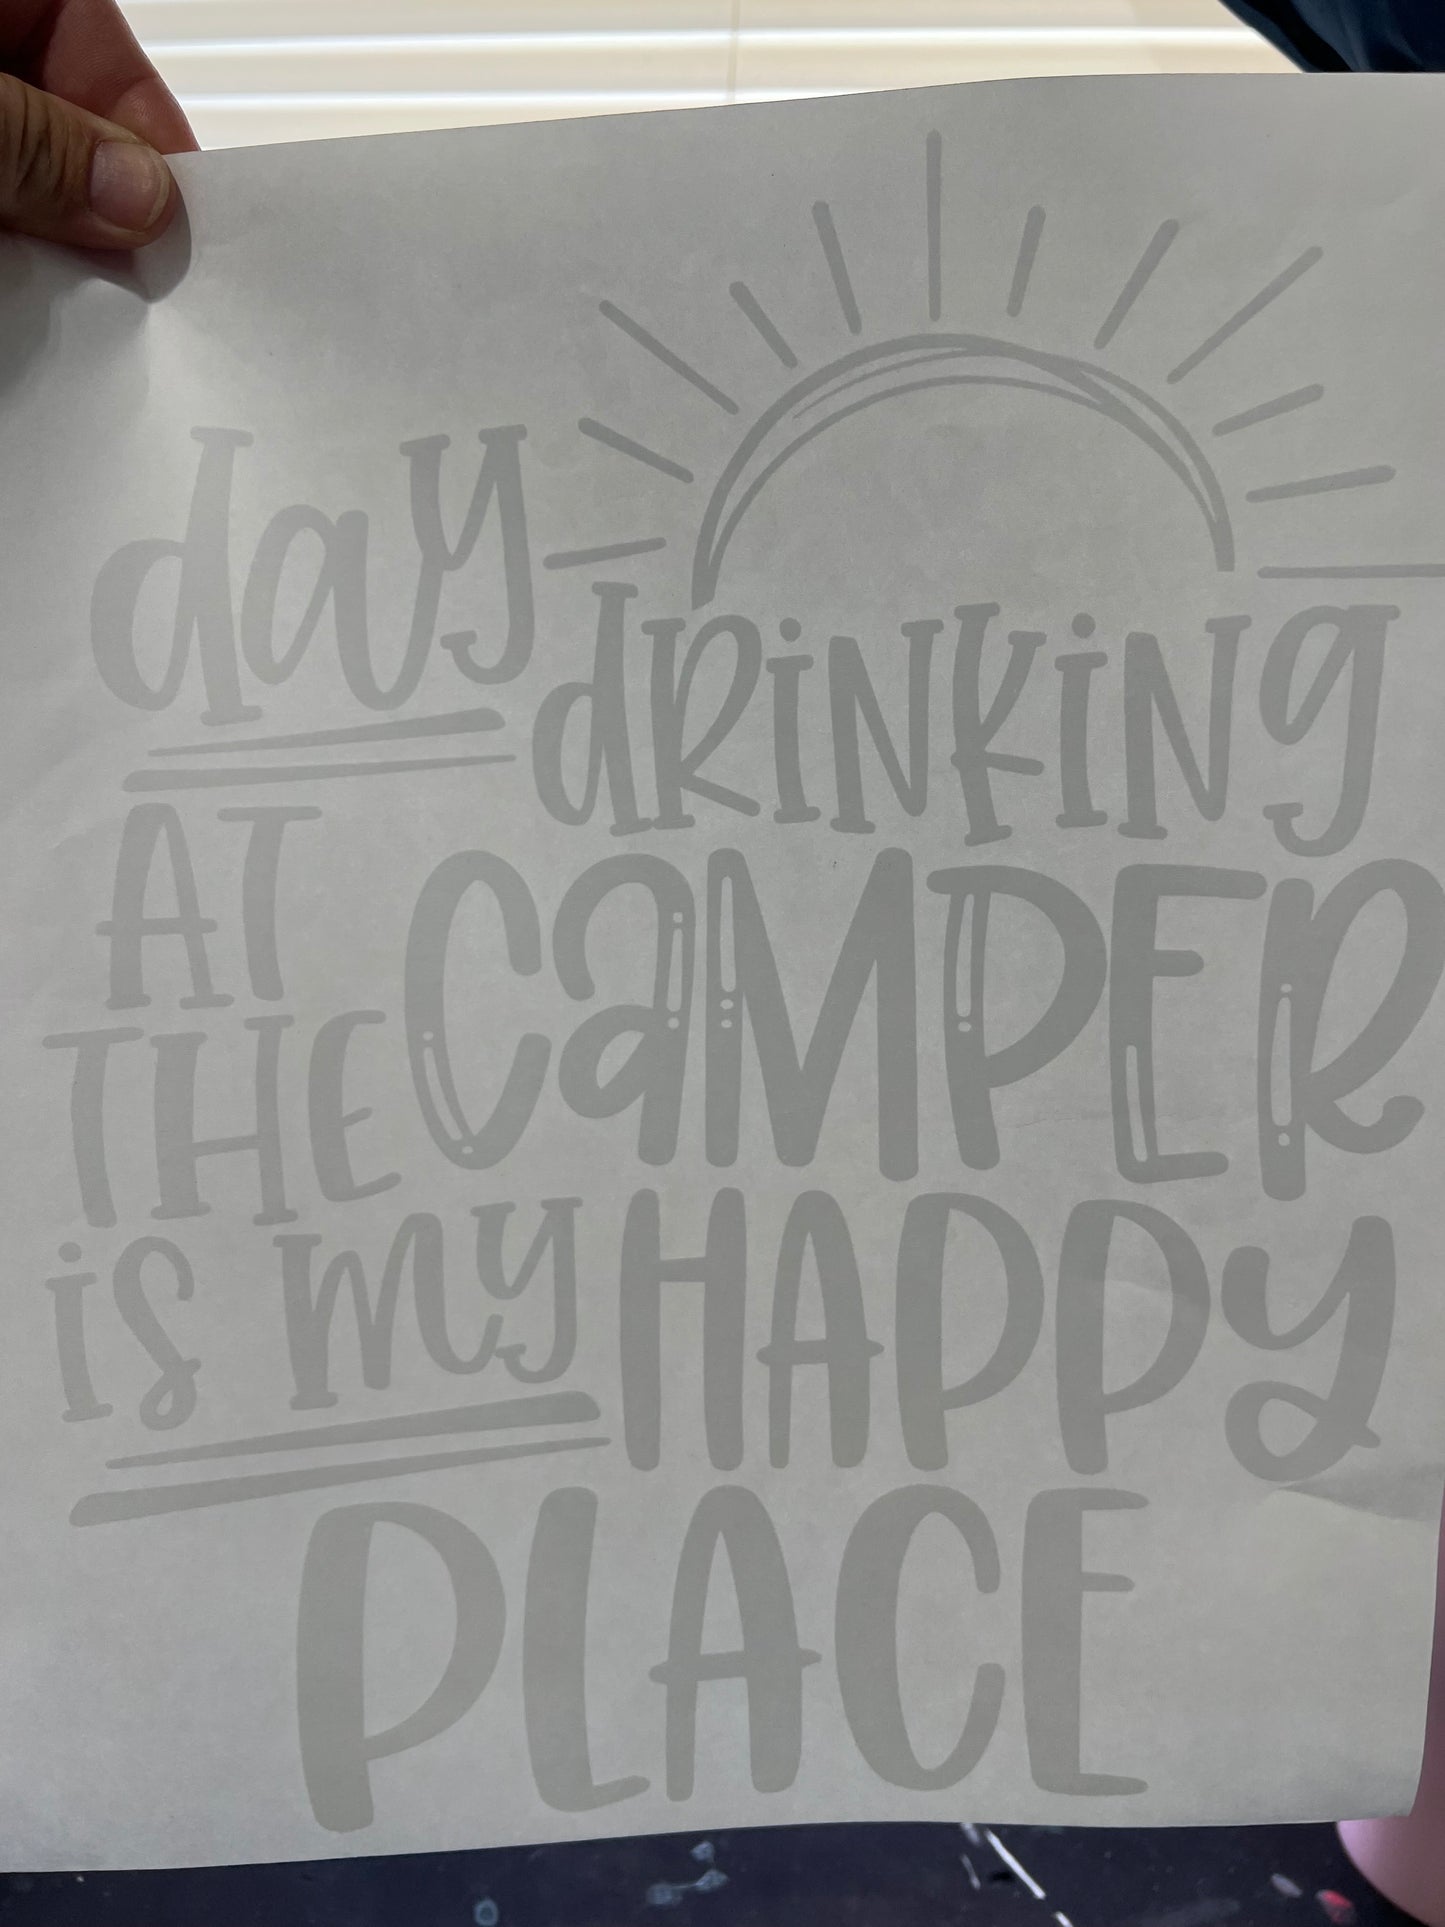 day
dRiNKiNg
AT
THE
CaMPER
is my
HAPPy
PLACE